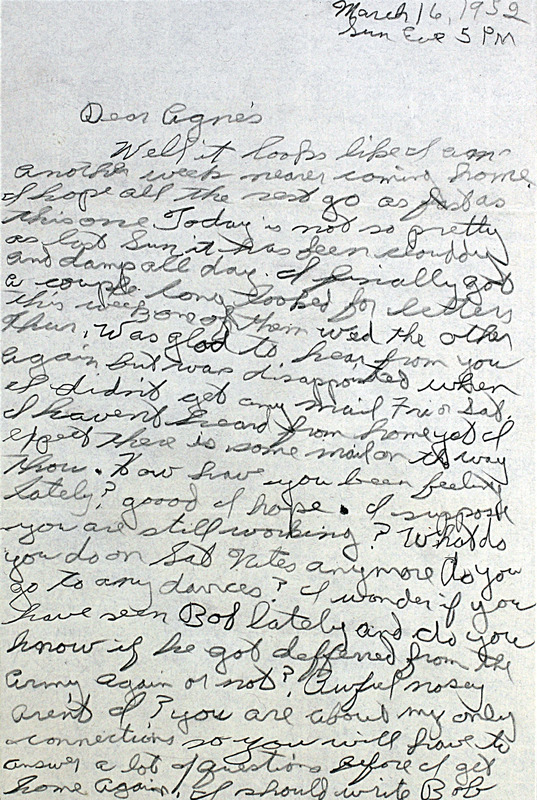 March 16, 1952
Sun Eve 5 PM
Dear Agnes
Well it looks like I am
another week nearer coming home.
I hope all the rest go as fast as
this one Today is not so pretty
as last Sun. it has been cloudy
and damp all day. I finially got
a couple long looked for letters
this week one of them wed the other
thur. Was glad to hear from you
again but was disappointed when
I didn't get any mail Fri or Sat.
I havent heard from home yet I
expect there is some mail on its way
thou. How have you been feeling
lately? goood I hope. I suppose
you are still working? What do
you do on Sat Nites anymore do you
go to any dances? I wonder if you
have seen Bob lately and do you
know if he got deffered from the
army again or not? Awful nosey
arent I? you are about my only
connections so you will have to
answer a lot of questions before I get
home again. I should write Bob